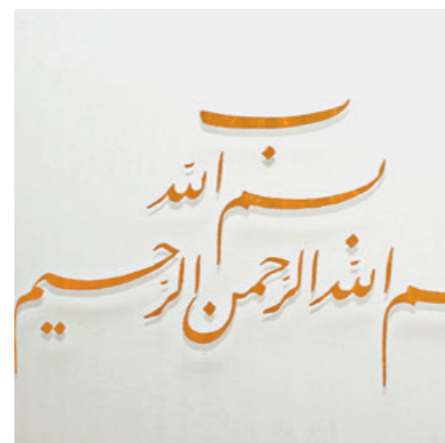 ب
بسم اللّٰه
اللّٰه الرّحمن الرّحیم